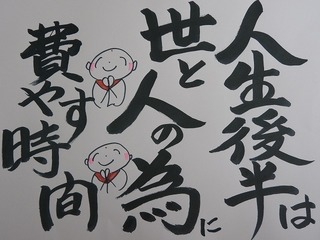 人生後半は
世と人の為に
費やす時間